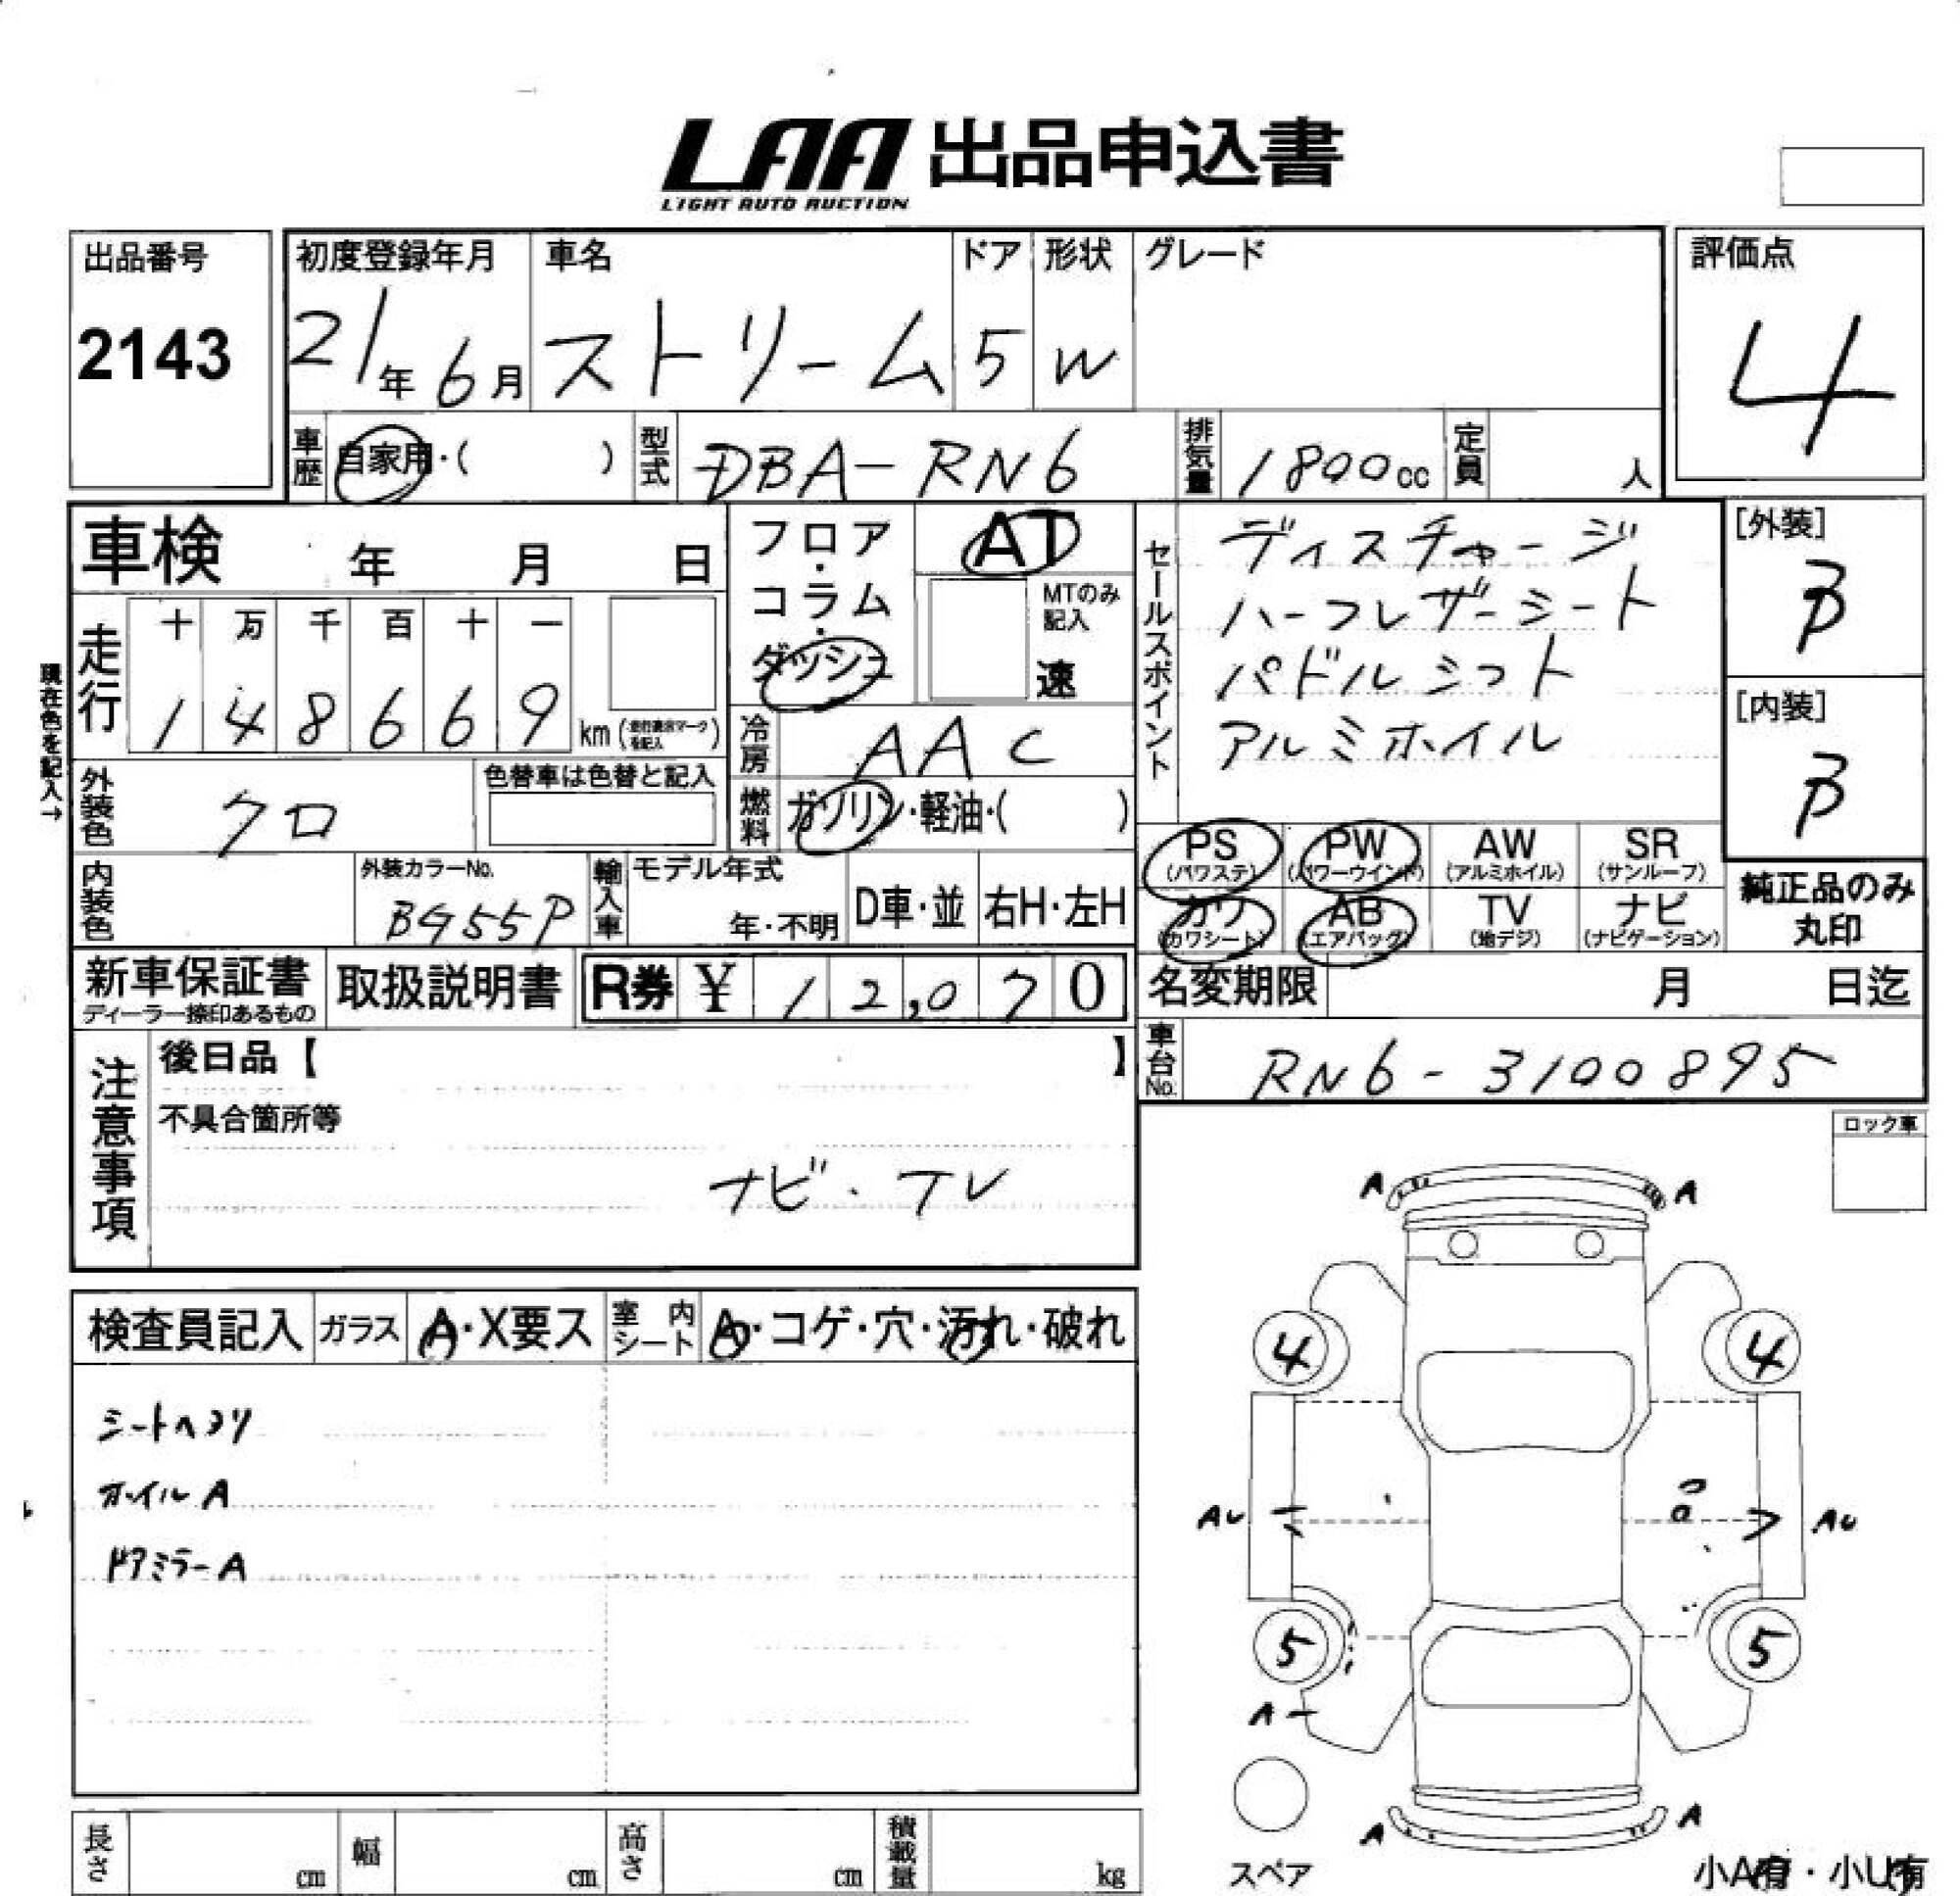 LAA 出品申込書
LIGHT AUTO AUCTION
出品番号
2143
初度登録年月
21年 6月
車名
ストリーム
ドア
5
形状
W
グレード
評価点
4
車歴
自家用・( )
型式
DBA-RN6
排気量
1800cc
定員
人
車検 年 月 日
フロア・コラム・ダッシュ
AT
MTのみ記入
速
セールスポイント
ディスチャージ
ハーフレザーシート
パドルシフト
アルミホイル
[外装]
B
[内装]
B
現在色を記入→
走行
十 万 千 百 十 一
1 4 8 6 6 9 km
冷房
AAC
外装色
クロ
色替車は色替と記入
燃料
ガソリン・軽油・( )
PS (パワステ)
PW (パワーウインド)
AW (アルミホイル)
SR (サンルーフ)
カワ (カワシート)
AB (エアバッグ)
TV (地デジ)
ナビ (ナビゲーション)
純正品のみ
丸印
内装色
外装カラーNo.
B955P
輸入車
モデル年式
年・不明
D車・並
右H・左H
新車保証書
ディーラー捺印あるもの
取扱説明書
R券 ¥ 1 2,0 7 0
名変期限 月 日迄
車台No.
RN6-3100895
注意事項
後日品【 】
不具合箇所等
ナビ・TV
ロック車
検査員記入
ガラス
A・X要ス
室内シート
A・コゲ・穴・汚れ・破れ
シートヘコリ
ホイルA
ドアミラーA
A A
4 4
AU AU
5 5
A
A A
スペア
小A有・小U有
長さ cm
幅 cm
高さ cm
積載量 kg